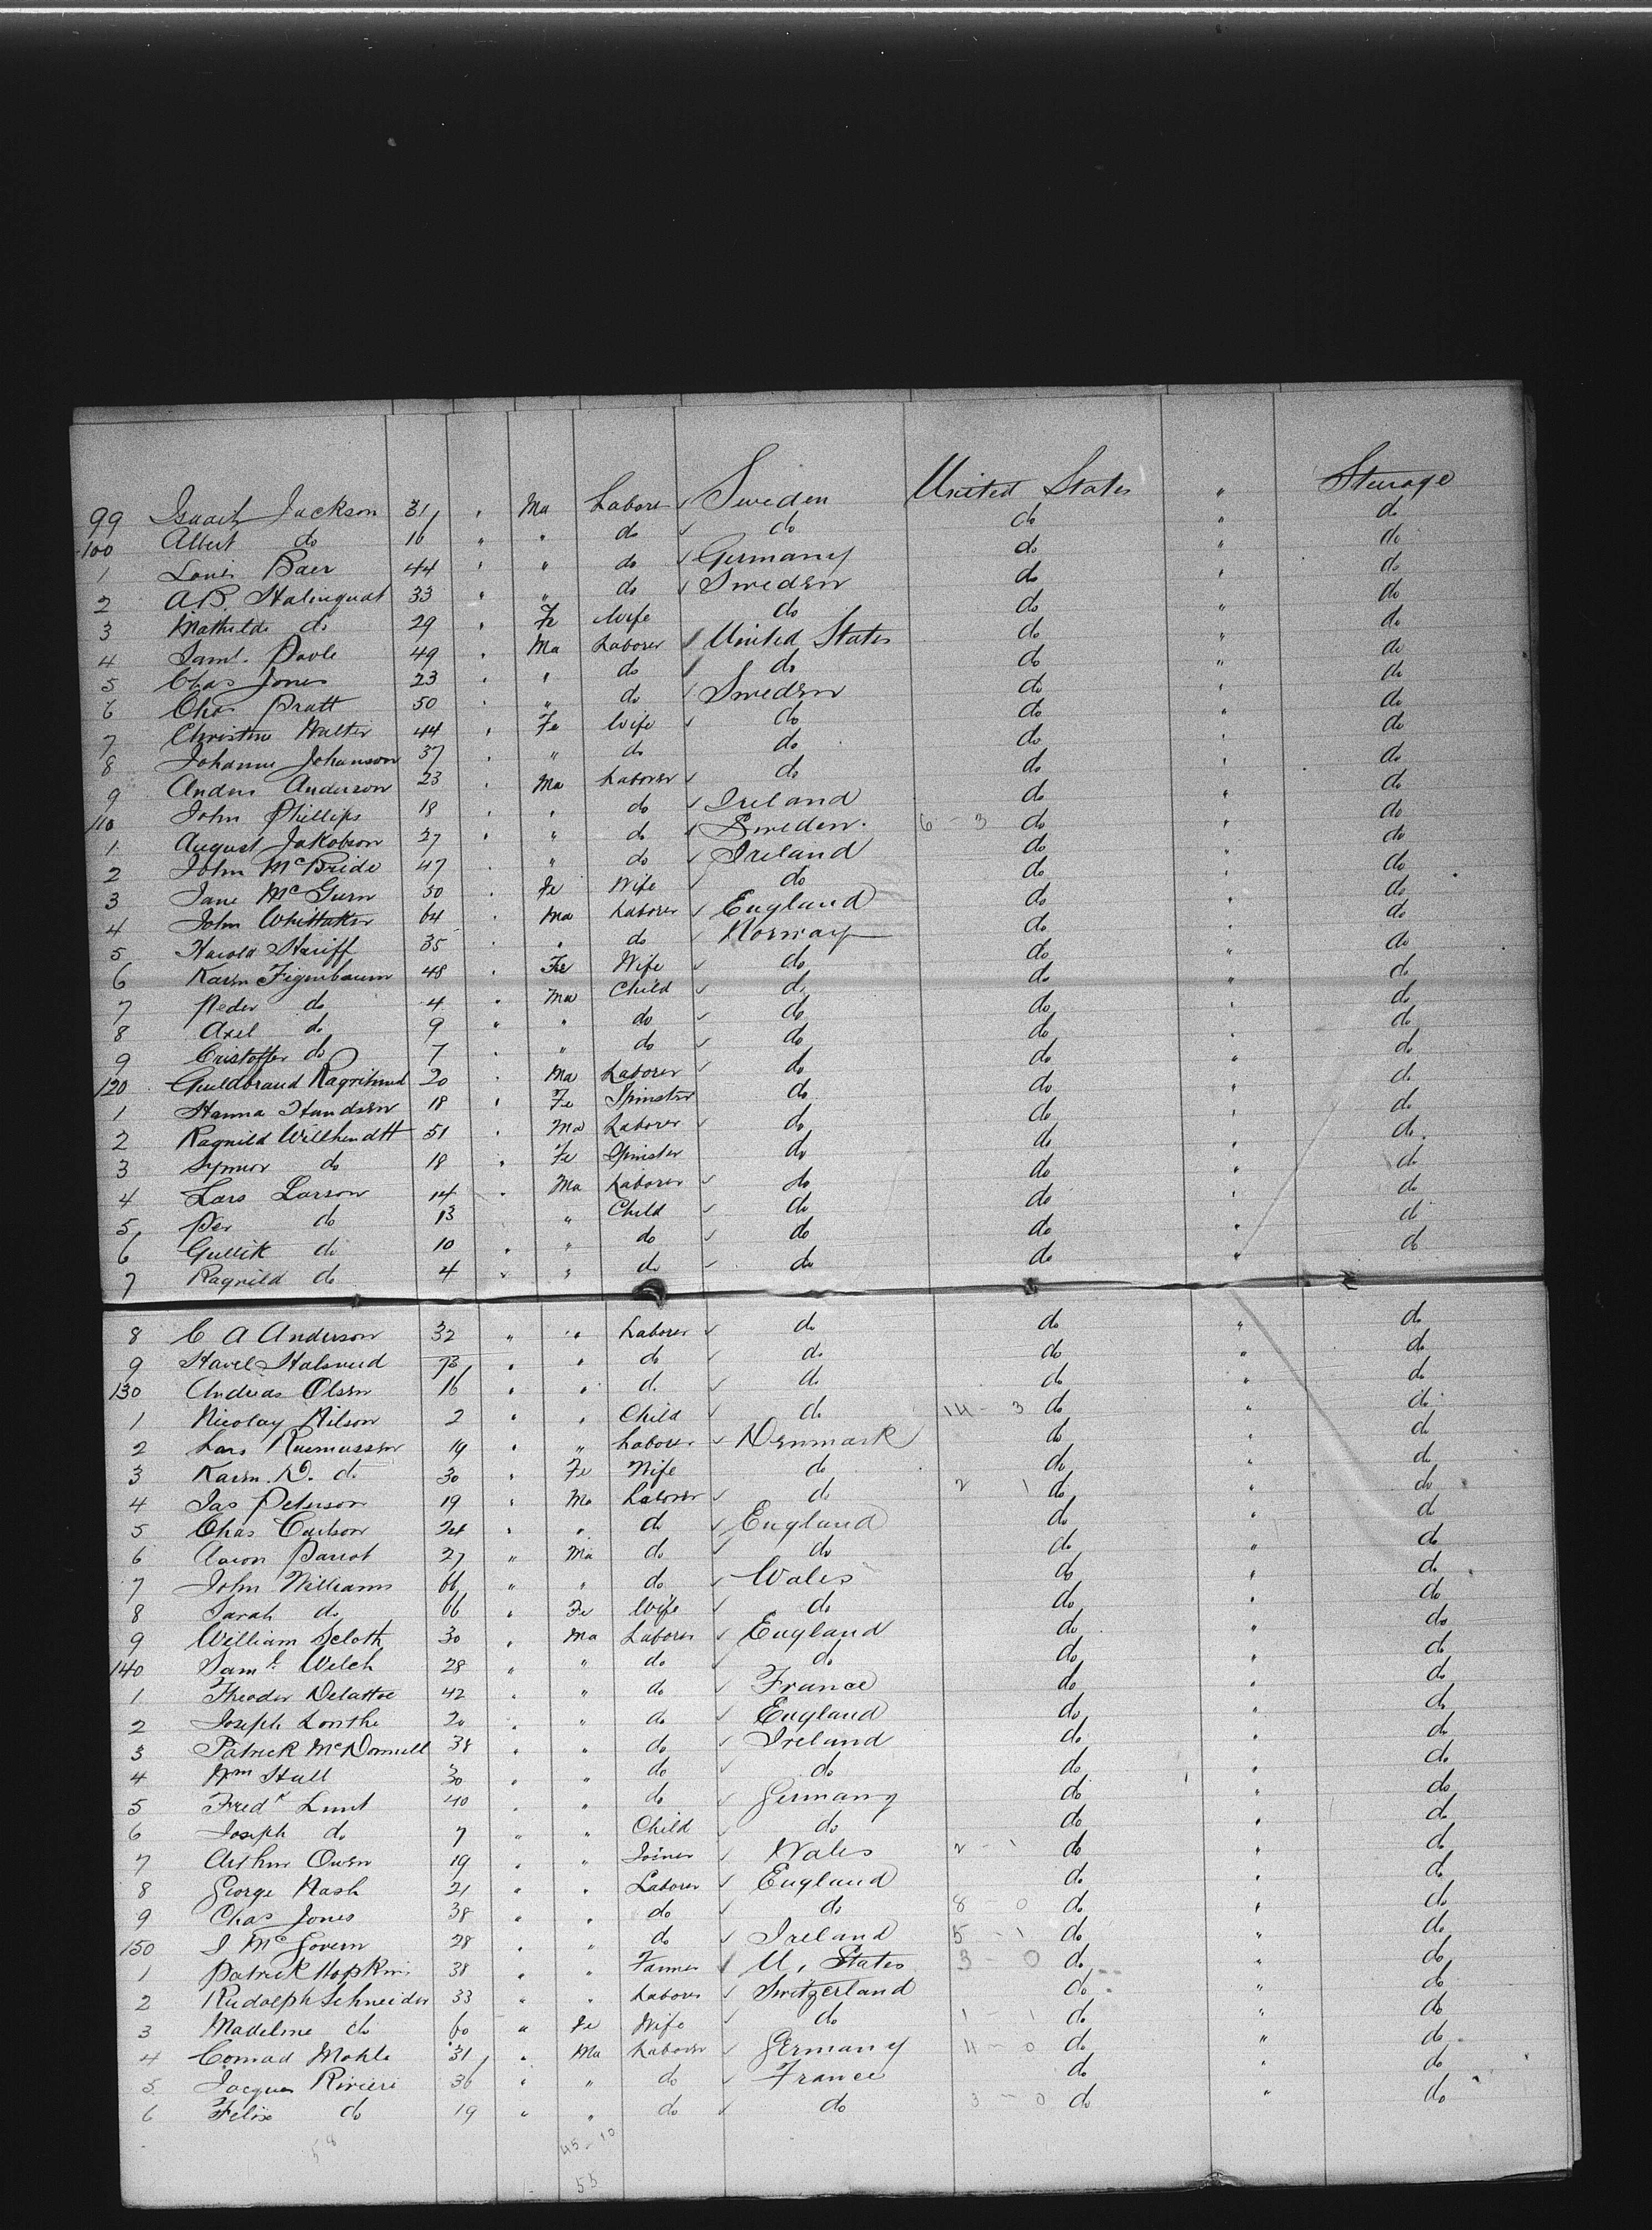 99 Isaach Jackson 31 " Ma Labore ✓ Sweden United States " Sturage
100 Albert do 16 " " do ✓ do do " do
1 Louis Baer 44 " " do ✓ Germany do " do
2 A.B. Stalinquat 33 " " do ✓ Sweden do " do
3 Mathilde do 29 " Fe Wife do do " do
4 Saml. Poole 49 " Ma Laborer ✓ United States do " do
5 Chas Jones 23 " " do ✓ do do " do
6 Chas Pratt 50 " " do ✓ Sweden do " do
7 Christine Walter 44 " Fe Wife ✓ do do " do
8 Johanne Johanson 37 " " do do do " do
9 Anders Anderson 23 " Ma Laborer ✓ do do " do
110 John Phillips 18 " " do ✓ Ireland do " do
1 August Jakobson 27 " " do ✓ Sweden 6 - 3 do " do
2 John McBride 47 " " do ✓ Ireland do " do
3 Jane McGurn 50 " Fe Wife ✓ do do " do
4 John Whittaker 64 " Ma Laborer ✓ England do " do
5 Harold Stariff 35 " " do ✓ Norway do " do
6 Karen Figenbaum 48 " Fe Wife ✓ do do " do
7 Peder do 4 " Ma Child ✓ do do " do
8 Axel do 9 " " do ✓ do do " do
9 Cristoffer do 7 " " do ✓ do do " do
120 Guldbrand 20 " Ma Laborer ✓ do do " do
1 Hanna 18 " Fe Spinster do do " do
2 Ragnild Willhendtt 51 " Ma Laborer ✓ do do " do
3 do 18 " Fe Spinster do do " do
4 Lars Larson 14 " Ma Laborer ✓ do do " do
5 Per do 13 " Child ✓ do do " do
6 Gullik do 10 " " do ✓ do do " do
7 Ragnild do 4 " " do ✓ do do " do
8 C A Anderson 32 " " Laborer ✓ do do " do
9 Havel Halsrud 73 " " do ✓ do do " do
130 Andreas Olsen 16 " " do ✓ do do " do
1 Nicolay Nilson 2 " " Child ✓ do 14 - 3 do " do
2 Lars Rasmussen 19 " " Laborer ✓ Denmark do " do
3 Karen. D. do 30 " Fe Wife do do " do
4 Jas Peterson 19 " Ma Laborer ✓ do 2 1 do " do
5 Chas Carlson 24 " " do ✓ England do " do
6 Aaron Parrot 27 " Ma do ✓ do do " do
7 John Williams 66 " " do ✓ Wales do " do
8 Sarah do 66 " Fe Wife ✓ do do " do
9 William Scloth 30 " Ma Laborer ✓ England do " do
140 Saml. Welch 28 " " do ✓ do do " do
1 Theodor Delattoe 42 " " do ✓ France do " do
2 Joseph Lonthe 20 " " do ✓ England do " do
3 Patrick McDonnell 38 " " do ✓ Ireland do " do
4 Wm Hall 30 " " do ✓ do do " do
5 Fredk Lunt 40 " " do ✓ Germany do " do
6 Joseph do 7 " " Child ✓ do do " do
7 Arthur Owen 19 " " Joiner ✓ Wales 2 - 1 do " do
8 George Nash 21 " " Laborer ✓ England do " do
9 Chas Jones 38 " " do ✓ do 8 - 0 do " do
150 J McGovern 28 " " do ✓ Ireland 5 - 1 do " do
1 Patrick Hopkins 38 " " Farmer ✓ U. States 3 - 0 do " do
2 Rudolph Schneider 33 " " Laborer ✓ Switzerland do " do
3 Madeline do 60 " Fe Wife ✓ do 1 - 1 do " do
4 Conrad Mohle 31 " Ma Laborer ✓ Germany 11 - 0 do " do
5 Jacques Riviere 36 " " do ✓ France do " do
6 Felix do 19 " " do ✓ do 3 - 0 do " do
58 45 - 10
55